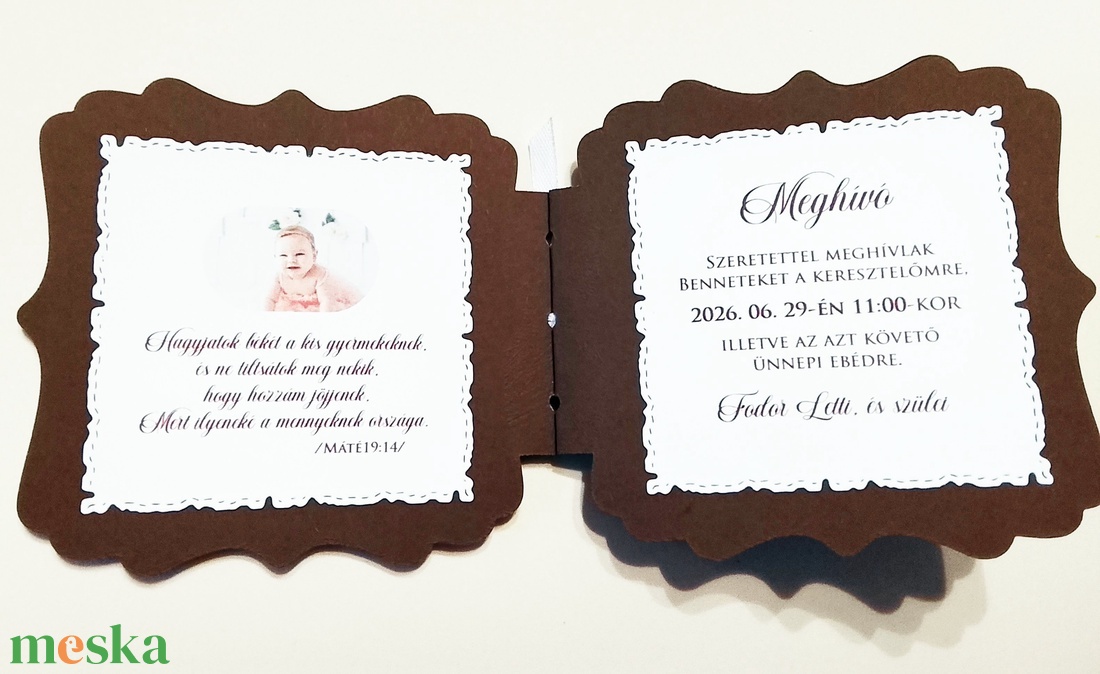 Hagyjatok békét a kis gyermekeknek,
és ne tiltsátok meg nékik,
hogy hozzám jőjjenek.
Mert ilyeneké a mennyeknek országa.
/Máté19:14/
Meghívó
Szeretettel meghívlak
Benneteket a keresztelőmre,
2026. 06. 29-én 11:00-kor
illetve az azt követő
ünnepi ebédre.
Fodor Letti, és szülei
meska